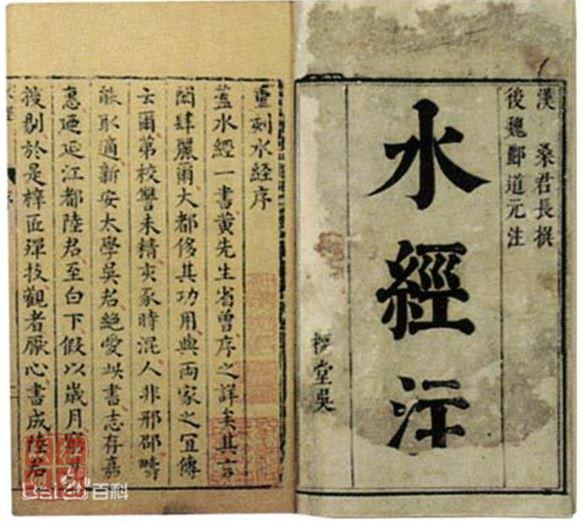 漢 桑君長撰
後魏酈道元注
水經注
堂吳
重刻水經序
蓋水經一書黃先生省曾序之詳矣其言
閎肆麗爾大都侈其功用與兩家之宜傳
云爾第校讐未精亥豕時混人非邢邵疇
能取適新安太學吳君絕愛此書志存嘉
惠迺延江都陸君至白下假以歲月
搜剔於是梓匠殫技觀者厭心書成陸君
Bai 百科